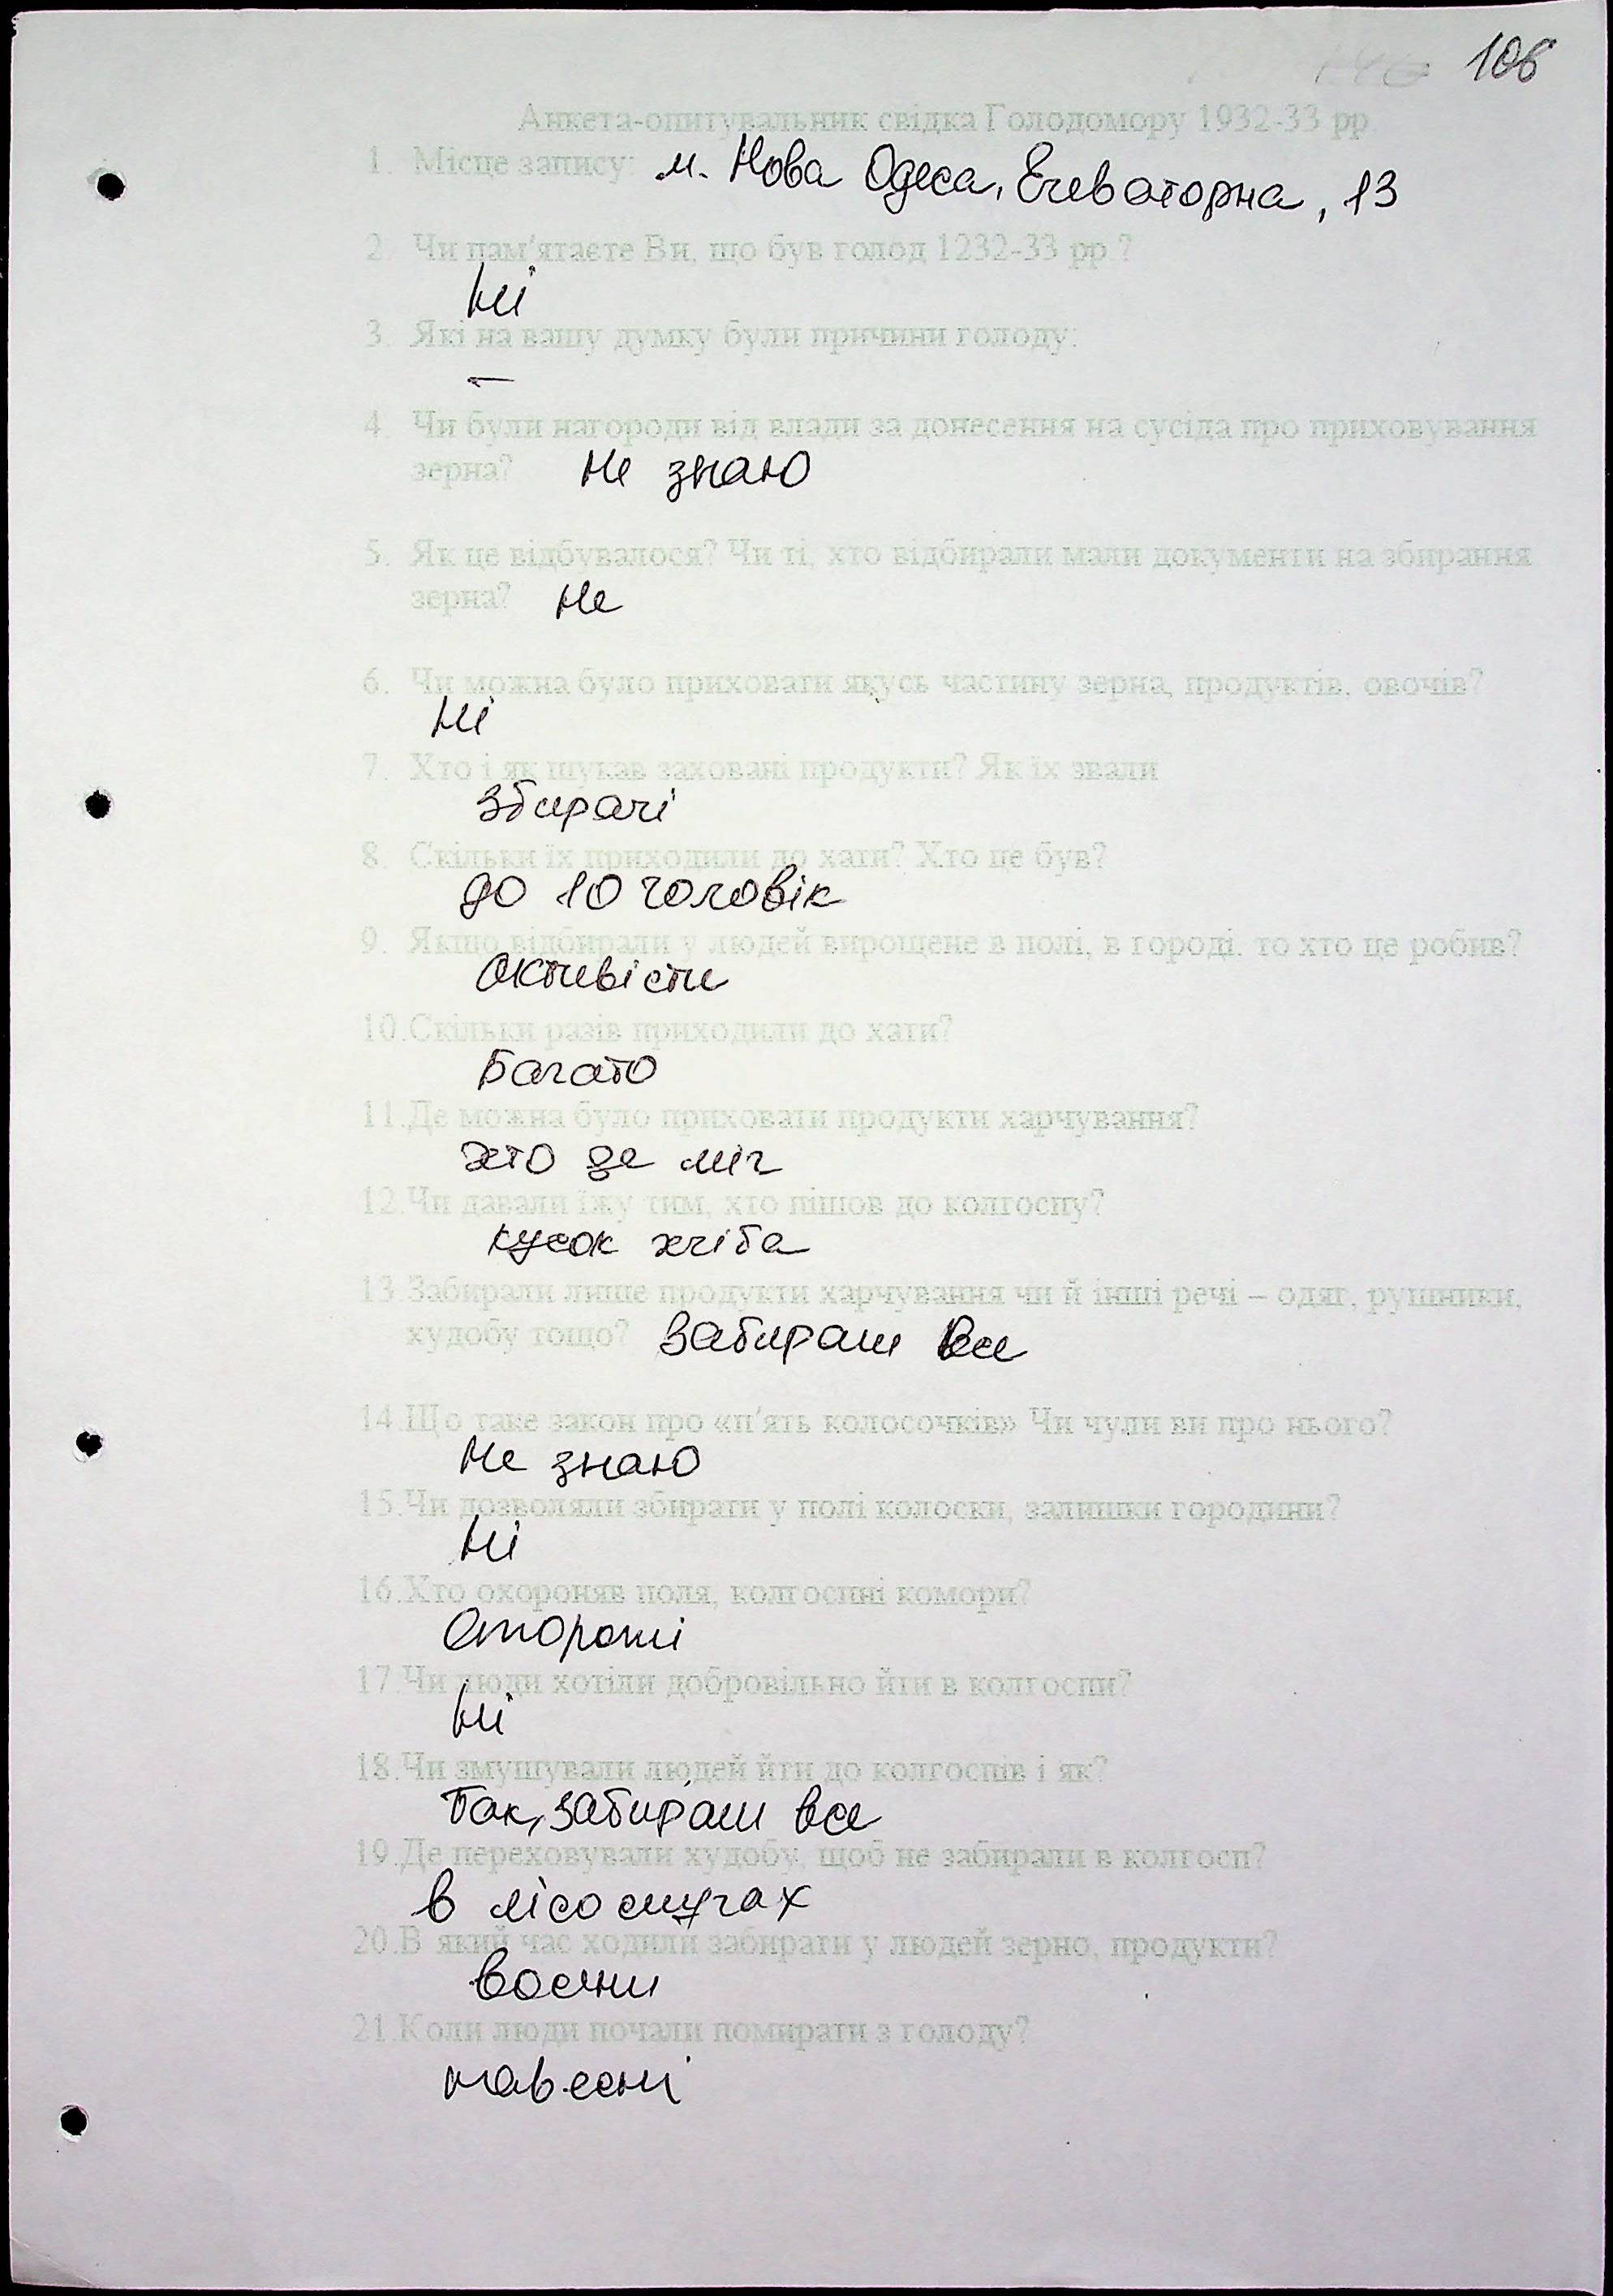 106
Анкета-опитувальник свідка Голодомору 1932-33 рр.
1. Місце запису: м. Нова Одеса, Елеваторна, 13
2. Чи пам'ятаєте Ви, що був голод 1232-33 рр.?
Ні
3. Які на вашу думку були причини голоду:
–
4. Чи були нагороди від влади за донесення на сусіда про приховування
зерна? Не знаю
5. Як це відбувалося? Чи ті, хто відбирали мали документи на збирання
зерна? Не
6. Чи можна було приховати якусь частину зерна, продуктів, овочів?
Ні
7. Хто і як шукав заховані продукти? Як їх звали
Збирачі
8. Скільки їх приходили до хати? Хто це був?
до 10 чоловік
9. Якщо відбирали у людей вирощене в полі, в городі, то хто це робив?
Активісти
10.Скільки разів приходили до хати?
Багато
11.Де можна було приховати продукти харчування?
хто де міг
12.Чи давали їжу тим, хто пішов до колгоспу?
кусок хліба
13.Забирали лише продукти харчування чи й інші речі – одяг, рушники,
худобу тощо? Забирали все
14.Що таке закон про «п'ять колосочків» Чи чули ви про нього?
Не знаю
15.Чи дозволяли збирати у полі колоски, залишки городини?
Ні
16.Хто охороняв поля, колгоспні комори?
Сторожі
17.Чи люди хотіли добровільно йти в колгоспи?
Ні
18.Чи змушували людей йти до колгоспів і як?
Так, забирали все
19.Де переховували худобу, щоб не забирали в колгосп?
в лісосмугах
20.В який час ходили забирати у людей зерно, продукти?
Восени
21.Коли люди почали помирати з голоду?
навесні